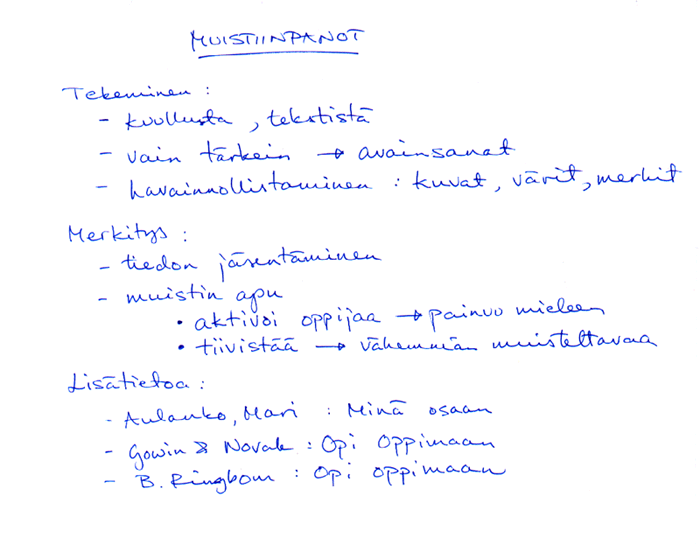 MUISTIINPANOT
Tekeminen :
- kuullusta, tekstistä
- vain tärkein → avainsanat
- havainnollistaminen : kuvat, värit, merkit
Merkitys :
- tiedon jäsentäminen
- muistin apu
• aktivoi oppijaa → painuu mieleen
• tiivistää → vähemmän muisteltavaa
Lisätietoa :
- Aulanko, Mari : Minä osaan
- Gowin & Novak : Opi oppimaan
- B. Ringbom : Opi oppimaan